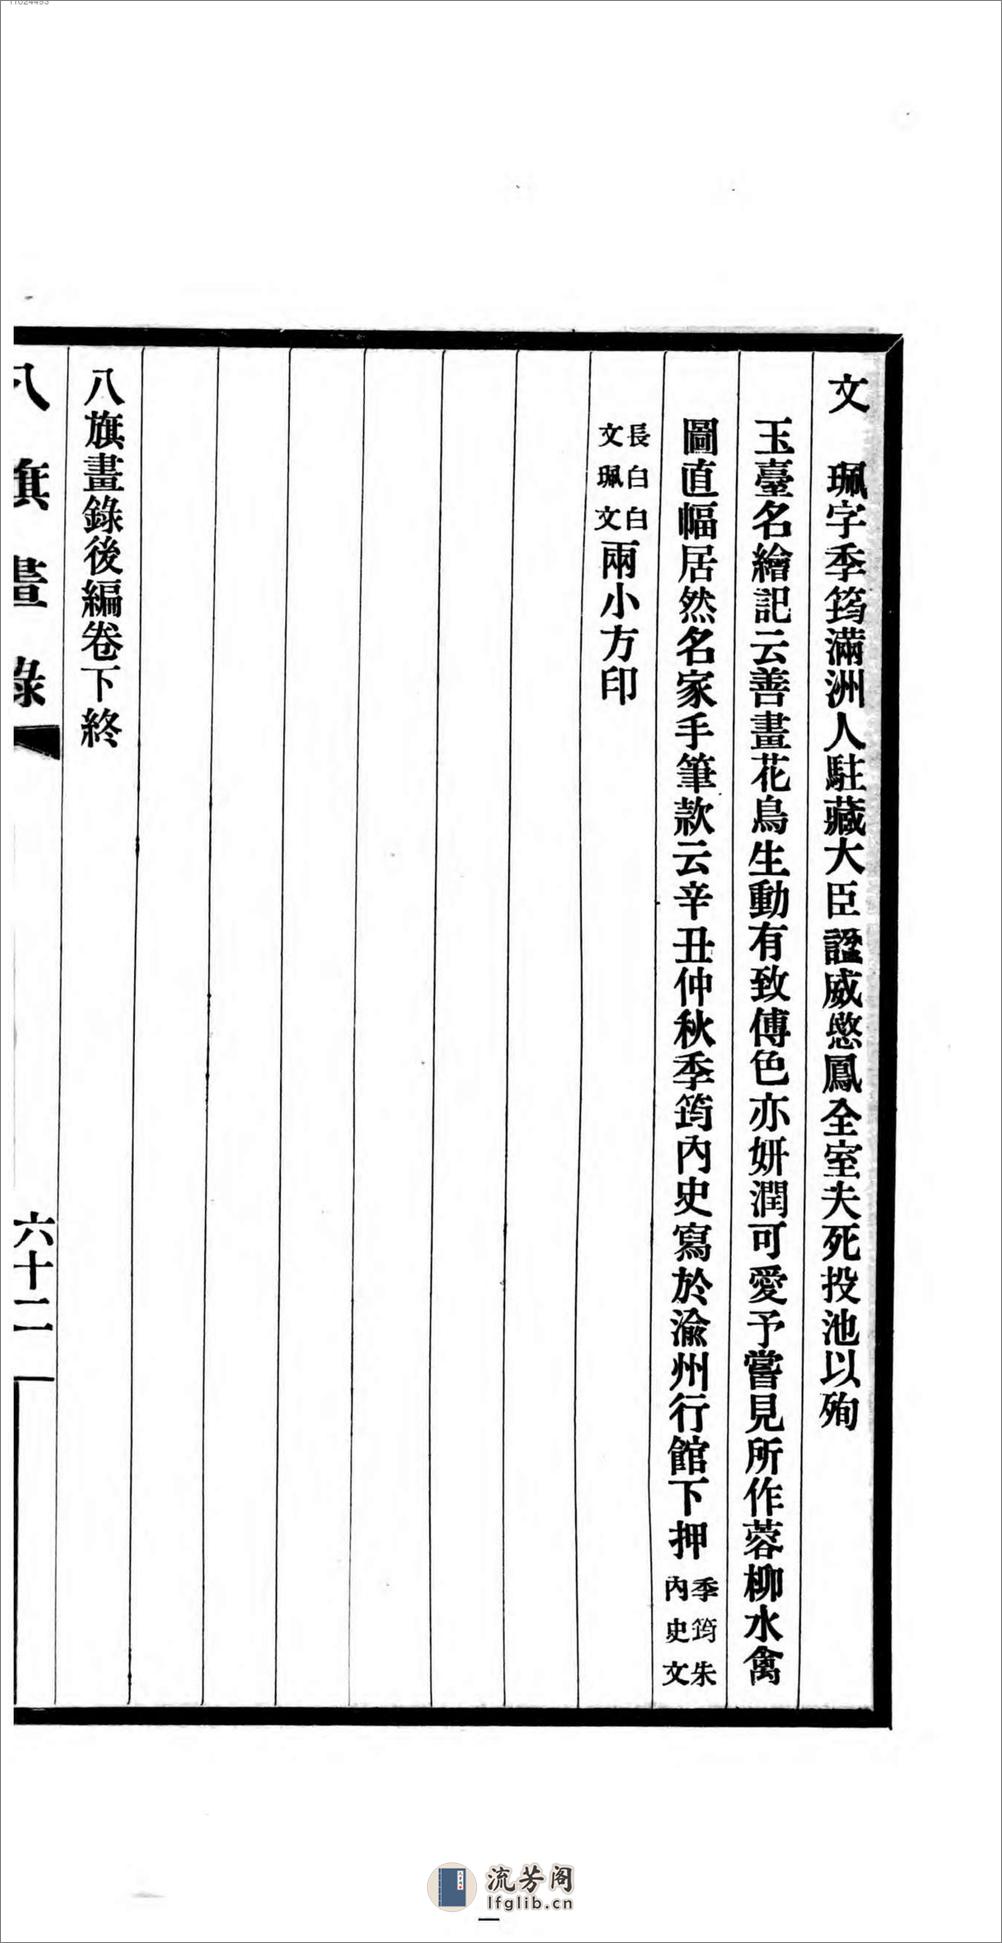 11024493
文　珮字季筠滿洲人駐藏大臣諡威愍鳳全室夫死投池以殉
玉臺名繪記云善畫花鳥生動有致傅色亦妍潤可愛予嘗見所作蓉柳水禽
圖直幅居然名家手筆款云辛丑仲秋季筠內史寫於渝州行館下押季筠朱
內史文
長白白
文珮文
兩小方印
八旗畫錄後編卷下終
八旗畫錄
六十二
流芳阁
lfglib.cn